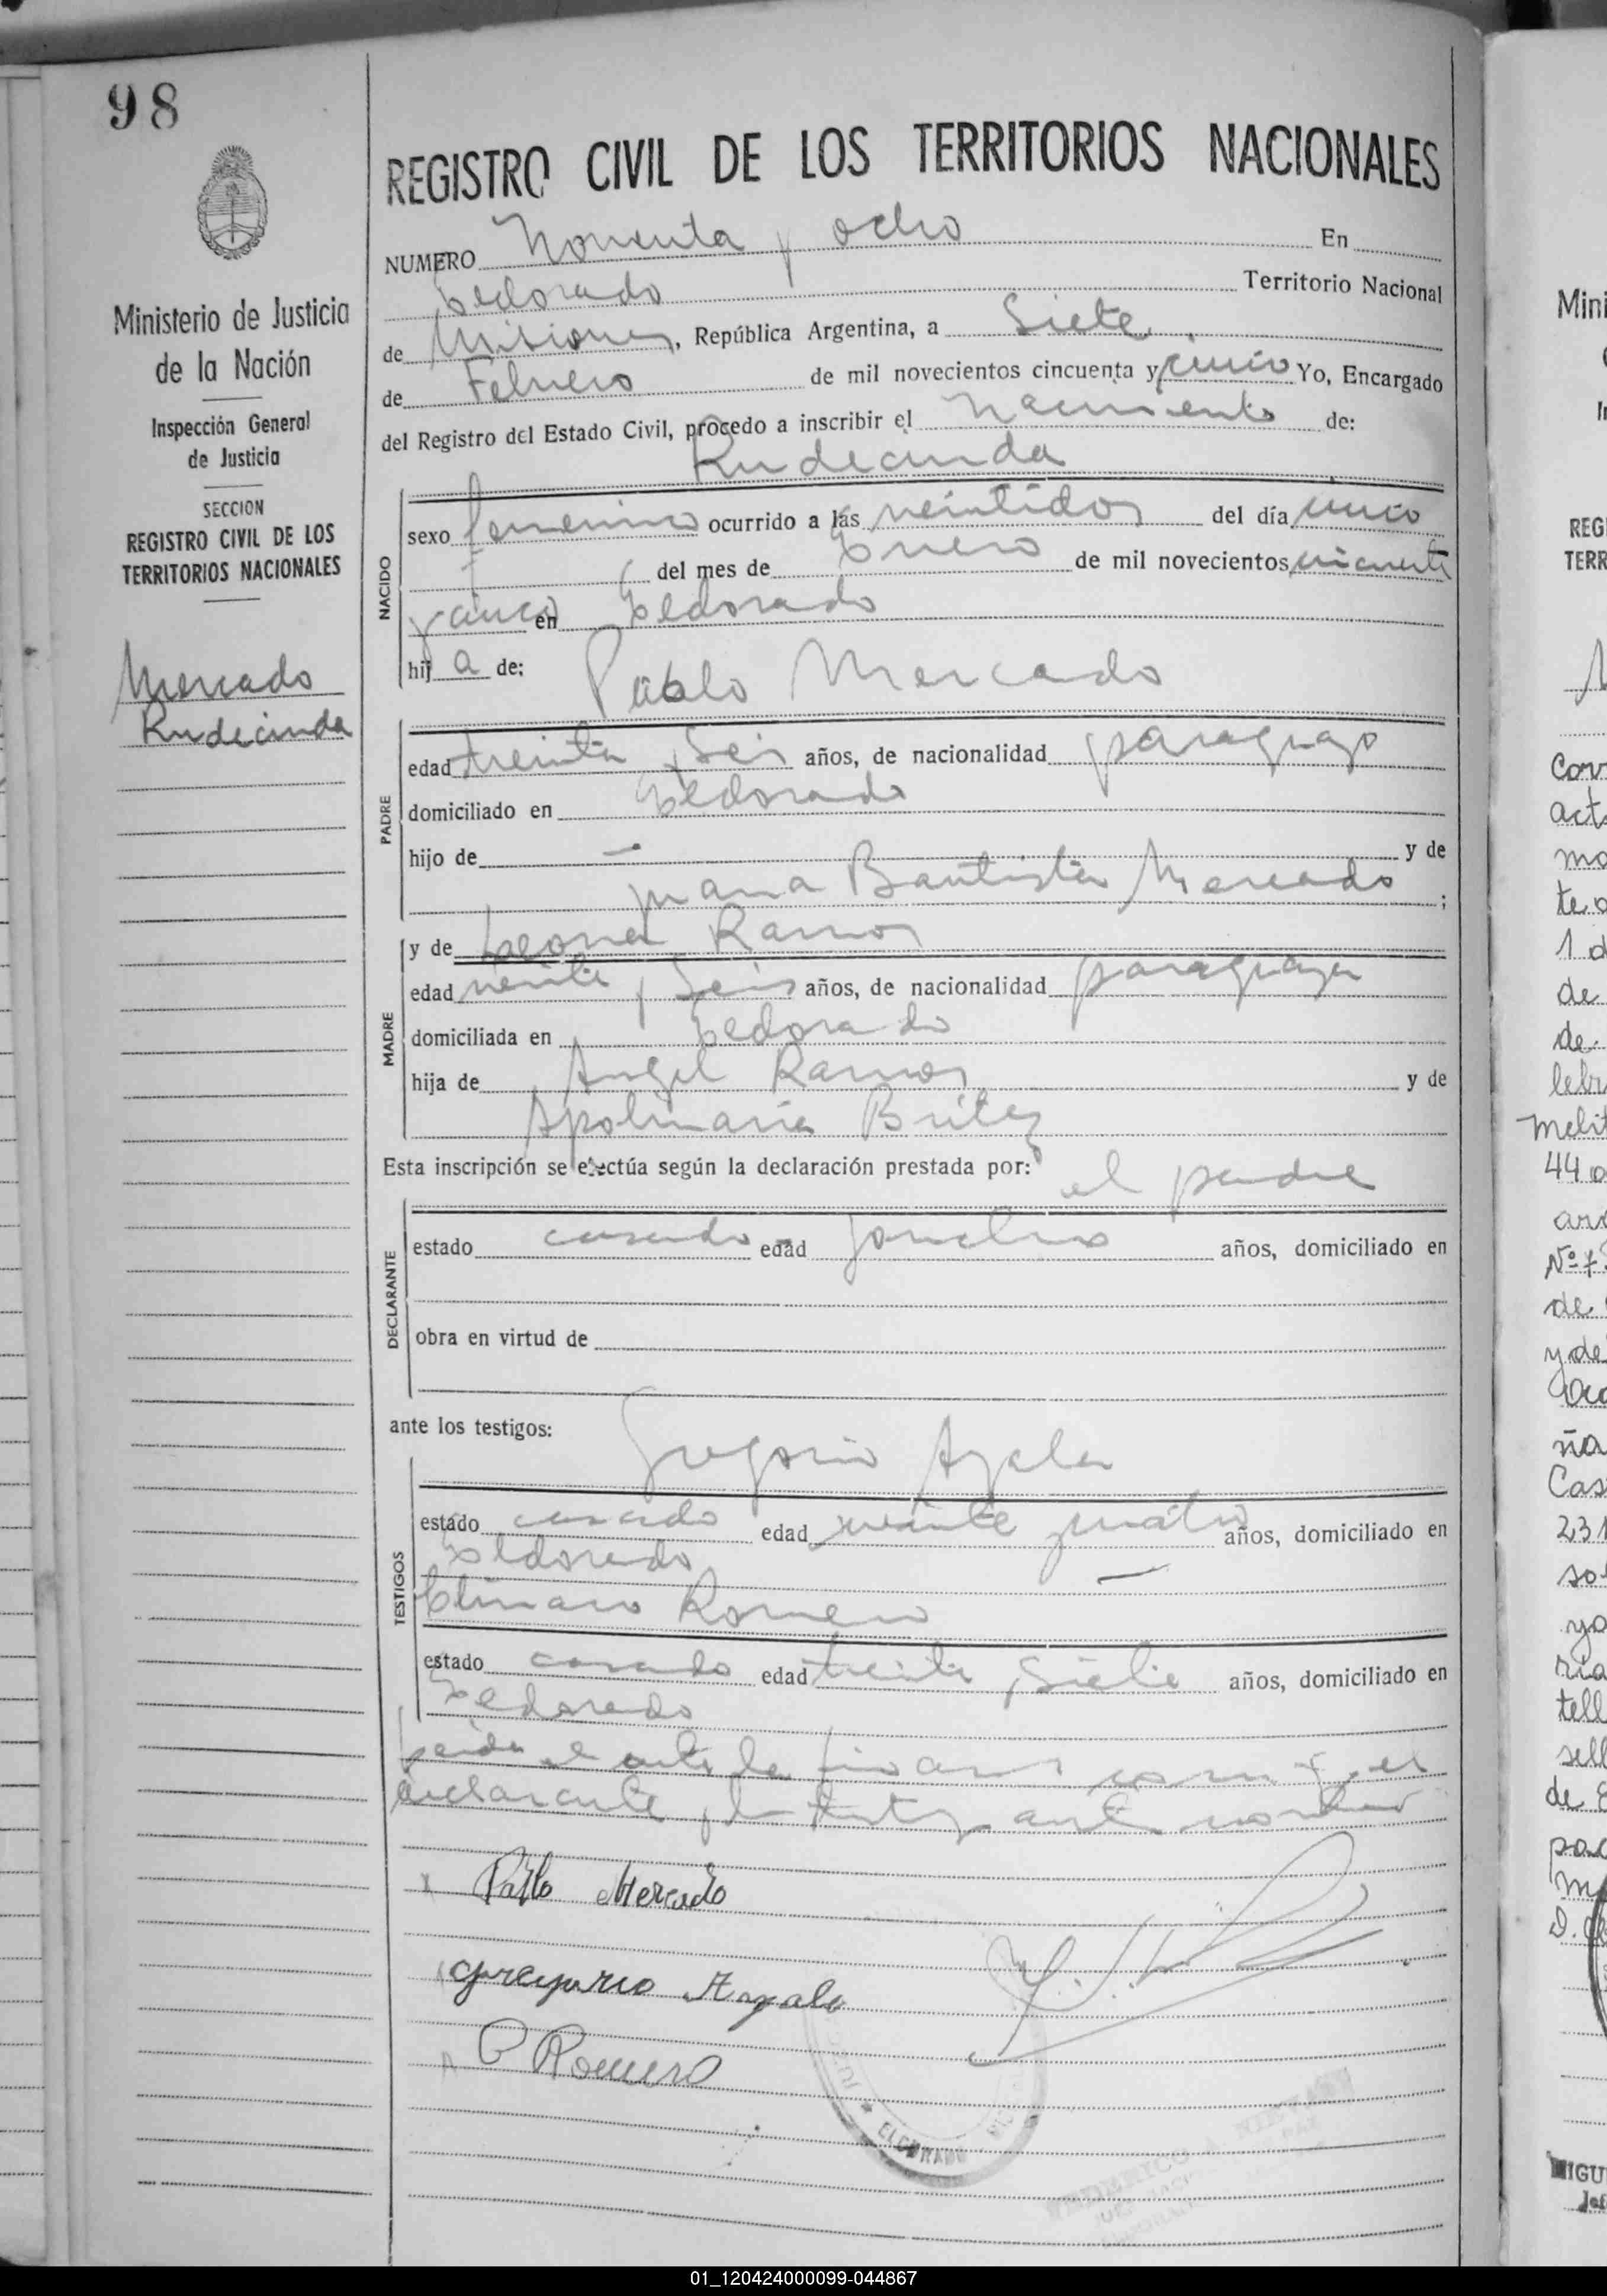 98
Ministerio de Justicia
de la Nación
Inspección General
de Justicia
SECCION
REGISTRO CIVIL DE LOS
TERRITORIOS NACIONALES
Mercado
Rudecinda
REGISTRO CIVIL DE LOS TERRITORIOS NACIONALES
NUMERO Noventa y ocho En
Eldorado Territorio Nacional
de Misiones, República Argentina, a Siete
de Febrero de mil novecientos cincuenta y cinco Yo, Encargado
del Registro del Estado Civil, procedo a inscribir el Nacimiento de:
Rudecinda
NACIDO
sexo femenino ocurrido a las veintidos del día cinco
del mes de Enero de mil novecientos cincuenta
y cinco en Eldorado
hija de: Pablo Mercado
PADRE
edad treinta y seis años, de nacionalidad paraguayo
domiciliado en Eldorado
hijo de — y de
Juana Bautista Mercado ;
y de Leona Ramos
MADRE
edad veinte y seis años, de nacionalidad paraguaya
domiciliada en Eldorado
hija de Angel Ramos y de
Apolinaria Britez
Esta inscripción se efectúa según la declaración prestada por: el padre
DECLARANTE
estado casado edad años, domiciliado en
obra en virtud de
ante los testigos:
Gregorio Ayala
TESTIGOS
estado casado edad veinte y cuatro años, domiciliado en
Eldorado —
Climaco Romero
estado casado edad treinta y siete años, domiciliado en
Eldorado
Leida el acta la firman el
declarante y los
x Pablo Mercado
Gregorio Ayala
C Romero
ELDORADO
Mini
REG
TERR
Cor
act
mo
te
1 d
de
de
44
Nº
de
y de
ña
Cas
231
so
ya
ria
tell
sell
de
pa
IGU
Jef
01_120424000099-044867